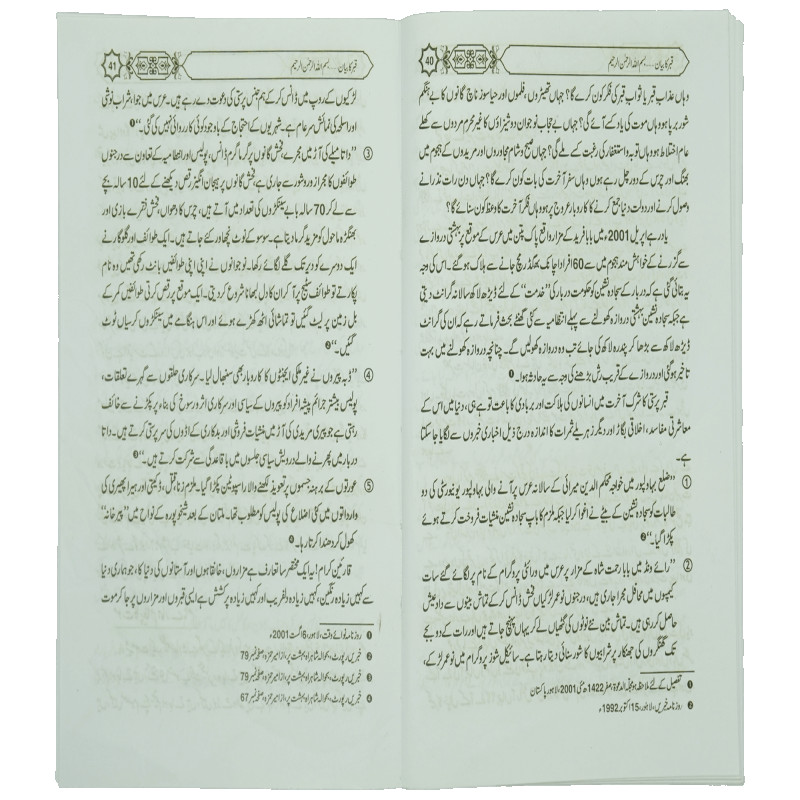 40
قبر کا بیان .... بسم اللہ الرحمٰن الرحیم
وہاں عذاب قبر یا ثواب قبر کی فکر کون کرے گا؟ جہاں تھیٹروں، فلموں اور حیا سوز ناچ گانوں کا بے ہنگم
شور برپا ہو وہاں موت کی یاد کسے آئے گی؟ جہاں بے حجاب نوجوان دوشیزاؤں کا غیر محرم مردوں سے کھلے
عام اختلاط ہو وہاں توبہ و استغفار کی رغبت کسے ملے گی؟ جہاں صبح و شام مجاوروں اور مریدوں کے ہجوم میں
بھنگ اور چرس کے دور چل رہے ہوں وہاں سفر آخرت کی بات کون کرے گا؟ جہاں دن رات نذرانے
وصول کرنے اور دولت دنیا جمع کرنے کا کاروبار عروج پر ہو وہاں فکر آخرت کا وعظ کون سنائے گا؟
یاد رہے اپریل 2001ء میں بابا فرید کے مزار واقع پاک پتن میں عرس کے موقع پر بہشتی دروازے
سے گزرنے کے خواہش مند ہجوم میں سے 60 افراد اچانک بھگدڑ مچ جانے سے ہلاک ہو گئے۔ اس کی وجہ
یہ بتائی گئی ہے کہ دربار کے سجادہ نشین کو حکومت دربار کی ”خدمت“ کے لئے ڈیڑھ لاکھ سالانہ گرانٹ دیتی
ہے جبکہ سجادہ نشین بہشتی دروازہ کھولنے سے پہلے انتظامیہ سے کئی گھنٹے بحث فرماتے رہے کہ ان کی گرانٹ
ڈیڑھ لاکھ سے بڑھا کر پندرہ لاکھ کی جائے تب وہ دروازہ کھولیں گے۔ چنانچہ دروازہ کھولنے میں بہت
تاخیر ہو گئی اور دروازے کے قریب رش بڑھنے کی وجہ سے یہ حادثہ ہوا۔ ❶
قبر پرستی کا شرک آخرت میں انسانوں کی ہلاکت اور بربادی کا باعث تو ہے ہی، دنیا میں اس کے
معاشرتی مفاسد، اخلاقی بگاڑ اور دیگر زہریلے ثمرات کا اندازہ درج ذیل اخباری خبروں سے لگایا جا سکتا
ہے۔
① ”ضلع بہاولپور میں خواجہ محکم الدین میرائی کے سالانہ عرس پر آنے والی بہاولپور یونیورسٹی کی دو
طالبات کو سجادہ نشین کے بیٹے نے اغوا کر لیا جبکہ ملزم کا باپ سجادہ نشین منشیات فروخت کرتے ہوئے
پکڑا گیا۔“ ❷
② ”رائے ونڈ میں بابا رحمت شاہ کے مزار پر عرس میں ورائٹی پروگرام کے نام پر لگائے گئے سات
کیمپوں میں محافل مجرا جاری ہیں، درجنوں نو عمر لڑکیاں فحش ڈانس کر کے تماش بینوں سے داد عیش
حاصل کر رہی ہیں۔ تماش بین نئے نوٹوں کی گتھیاں لے کر یہاں پہنچ جاتے ہیں اور رات کے دو بجے
تک گھنگروں کی جھنکار پر شرابیوں کا شور سنائی دیتا رہتا ہے۔ سائیکل شوز پروگرام میں نو عمر لڑکے،
❶ تفصیل کے لئے ملاحظہ ہو مجلہ الدعوۃ، صفر 1422ھ مئی 2001، لاہور پاکستان
❷ روزنامہ خبریں، لاہور، 15 اکتوبر 1992ء
41
قبر کا بیان .... بسم اللہ الرحمٰن الرحیم
لڑکیوں کے روپ میں ڈانس کر کے ہم جنس پرستی کی دعوت دے رہے ہیں۔ عرس میں جوا، شراب نوشی
اور اسلحہ کی نمائش سرعام ہے۔ شہریوں کے احتجاج کے باوجود کوئی کاروائی نہیں کی گئی۔“ ❶
③ ”داتا میلے کی آڑ میں مجرے، فحش گانوں پر گرما گرم ڈانس، پولیس اور انتظامیہ کے تعاون سے درجنوں
طوائفوں کا مجرا زور و شور سے جاری ہے، فحش گانوں پر ہیجان انگیز رقص دیکھنے کے لئے 10 سالہ بچے
سے لے کر 70 سالہ بابے سینکڑوں کی تعداد میں آتے ہیں، چرس کا دھواں، فحش فقرے بازی اور
بھنگڑہ ماحول کو مزید گرما دیتا ہے۔ سو سو کے نوٹ نچھاور کئے جاتے ہیں۔ ایک طوائف اور گلوکار نے
ایک دوسرے کو دیر تک گلے لگائے رکھا۔ نوجوانوں نے اپنی اپنی طوائفیں بانٹ رکھی تھیں وہ نام
پکارتے تو طوائف سٹیج پر آ کر ان کا دل لبھانا شروع کر دیتی۔ ایک موقع پر رقص کرتی طوائفیں کمر کے
بل زمین پر لیٹ گئیں تو تماشائی اٹھ کھڑے ہوئے اور اس ہنگامے میں سینکڑوں کرسیاں ٹوٹ
گئیں۔“ ❷
④ ”ڈبہ پیروں نے غیر ملکی ایجنٹوں کا کاروبار بھی سنبھال لیا۔ سرکاری حلقوں سے گہرے تعلقات،
پولیس بیشتر جرائم پیشہ افراد کو پیروں کے سیاسی اور سرکاری اثر و رسوخ کی بناء پر پکڑنے سے خائف
رہتی ہے جو پیری مریدی کی آڑ میں منشیات فروشی اور بدکاری کے اڈوں کی سرپرستی کرتے ہیں۔ داتا
دربار میں پھرنے والے درویش سیاسی جلسوں میں باقاعدگی سے شرکت کرتے ہیں۔“ ❸
⑤ عورتوں کے برہنہ جسموں پر تعویذ لکھنے والا راسپوٹین پکڑا گیا۔ ملزم زنا، قتل، ڈکیتی اور ہیرا پھیری کی
وارداتوں میں کئی اضلاع کی پولیس کو مطلوب تھا۔ ملتان کے بعد شیخوپورہ کے نواح میں ”پیر خانہ“
کھول کر دھندا کرتا رہا۔ ❹
قارئین کرام! یہ ایک مختصر سا تعارف ہے مزاروں، خانقاہوں اور آستانوں کی دنیا کا، جو ہماری دنیا
سے کہیں زیادہ رنگین، کہیں زیادہ دلفریب اور کہیں زیادہ پرکشش ہے ایسی قبروں اور مزاروں پر جا کر موت
❶ روزنامہ نوائے وقت، لاہور، 6 اگست 2001ء
❷ خبریں رپورٹ، بحوالہ شاہراہ بہشت پر، از امیر حمزہ، صفحہ نمبر 79
❸ خبریں رپورٹ، بحوالہ شاہراہ بہشت پر، از امیر حمزہ، صفحہ نمبر 79
❹ خبریں رپورٹ، بحوالہ شاہراہ بہشت پر، از امیر حمزہ، صفحہ نمبر 67